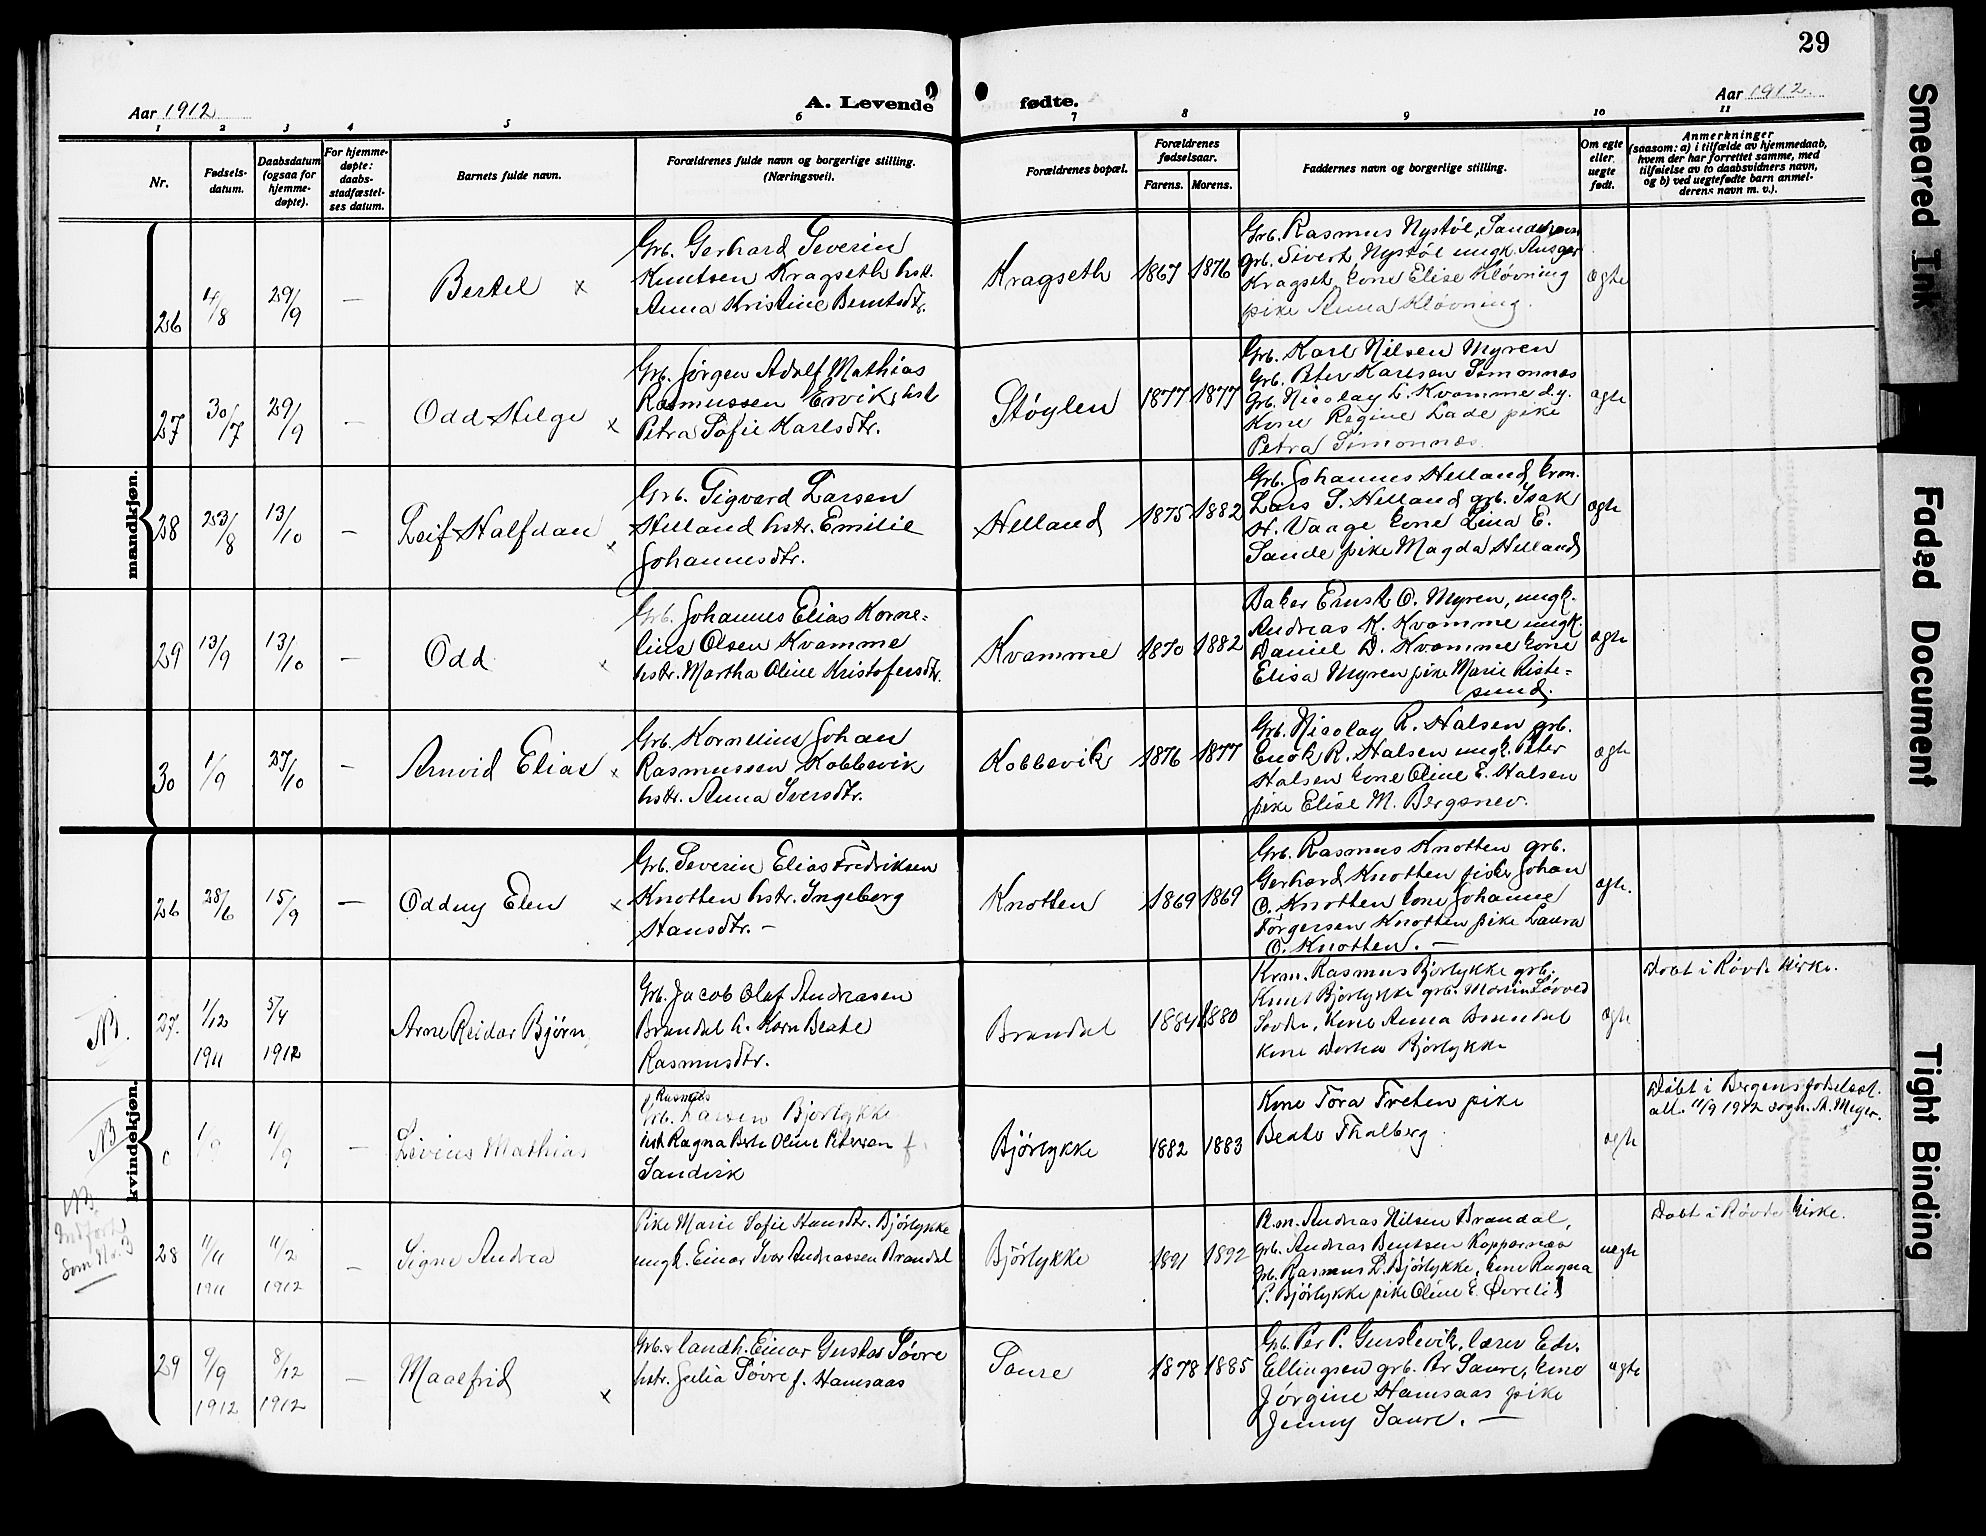 29
Aar 1912
A. Levende
fødte.
Aar 1912.
1 2 3 4 5 6 7 8 9 10 11
Nr.
Fødsels-
datum.
Daabsdatum
(ogsaa for
hjemme-
døpte).
For hjemme-
døpte:
daabs-
stadfæstel-
ses datum.
Barnets fulde navn.
Forældrenes fulde navn og borgerlige stilling.
(Næringsvei).
Forældrenes bopæl.
Forældrenes
fødselsaar.
Farens. Morens.
Faddernes navn og borgerlige stilling.
Om egte
eller
uegte
født.
Anmerkninger
(saasom: a) i tilfælde av hjemmedaab,
hvem der har forrettet samme, med
tilføielse av to daabsvidners navn,
og b) ved uegtefødte barn anmel-
derens navn m. v.).
mandkjøn.
26
4/8
29/9
—
Bertel x
Grb. Gerhard Severin
Knutsen Kragseth hst.
Anna Kristine Berntsdtr.
Kragseth
1867 1876
Grb. Rasmus Nystøl, Sandshavn
grb. Sivert Nystøl ungk. Ansgar
Kragset kone Elise Kløvning
pike Anna Kløvning.
ægte
27
30/7
29/9
—
Odd Helge x
Grb. Jörgen Adolf Mathias
Rasmussen Ervik, hst
Petra Sofie Karlsdtr.
Støylen
1877 1877
Grb. Karl Nilsen Myren
Grb. Peter Karlsen Simonnæs
Grb. Nicolay L. Kvamme d.y.
Kone Regine Lade pike
Petra Simonnæs
ægte
28
23/8
13/10
—
Leif Halfdan x
Grb. Sigvard Larsen
Helland hstr. Emilie
Johannesdtr.
Helland
1875 1882
Grb. Johannes Helland, krm.
Lars S. Helland grb. Isak
H. Vaage kone Lina E.
Sande pike Magda Helland
ægte
29
13/9
13/10
—
Odd x
Grb. Johannes Elias Korne-
lius Olsen Kvamme
hstr. Martha Oline Kristofersdtr.
Kvamme
1870 1882
Baker Ernst O. Myren, ungk.
Andreas K. Kvamme ungk.
Daniel D. Kvamme kone
Elisa Myren pike Marie Riste-
sund.
ægte
30
1/9
27/10
—
Arnvid Elias x
Grb. Kornelius Johan
Rasmussen Kobbevik
hstr. Anna Iversdtr.
Kobbevik
1876 1877
Grb. Nicolay R. Halsen grb.
Enok R. Halsen ungk. Peter
Halsen kone Oline E. Halsen
pike Elise M. Bergsnev.
ægte
kvindekjøn.
26
28/6
15/9
—
Oddny Elen x
Grb. Severin Elias Fredriksen
Knotten hstr. Ingeborg
Hansdtr. —
Knotten
1869 1869
Grb. Rasmus Knotten grb.
Gerhard Knotten fisker Johan
O. Knotten kone Johanne
Törgersen Knotten pike Laura
O. Knotten. —
ægte.
NB.
27.
1/12
1911
5/4
1912
Arne Reidar Bjørn
Grb. Jacob Olaf Andreasen
Brandal h. Korn Beate
Rasmusdtr.
Brandal
1884 1880
Krm. Rasmus Bjørlykke grb.
Knut Bjørlykke grb. Martin
Sovde, Kone Anna Brandal
kone Dorthea Bjørlykke
ægte
Døbt i Røvde Kirke.
NB
1/9
11/9
—
Livius Mathias
Rasmus
Grb. Larsen Bjørlykke
hst Ragna Berte Oline Petersen f.
Sandvik
Bjørlykke
1882 1883
Kone Tora Freten pike
Beate Thalberg
ægte
Døbt i Bergens fødselsst.
att. 11/9 1912 sogn. A. Meyer.
NB.
Indført
som No. 3
28
11/11
1911
11/2
1912
—
Signe Andrea
Pike Marie Sofie Hansdtr. Bjørlykke
ungk. Einar Ivar Andreassen Brandal
Bjørlykke
1891 1892
Krm. Andreas Nilsen Brandal,
Grb. Andreas Bentsen Koppernæs
Grb. Rasmus L. Bjørlykke, kone Ragna
P. Bjørlykke pike Oline E. Øvrelid
uegte
Døbt i Røvde kirke.
29
9/9
1912
8/12
1912
—
Maalfrid x
Grb. & landh. Einar Gustav Søvre
hstr. Julia Søvre f. Hamsaas
Saure
1878 1885
Grb. Per P. Gurskevik, lærer Edv.
Ellingsen grb. Per Saure, kone
Jörgine Hamsaas pike
Jenny Saure. —
ægte
Smeared Ink
Faded Document
Tight Binding